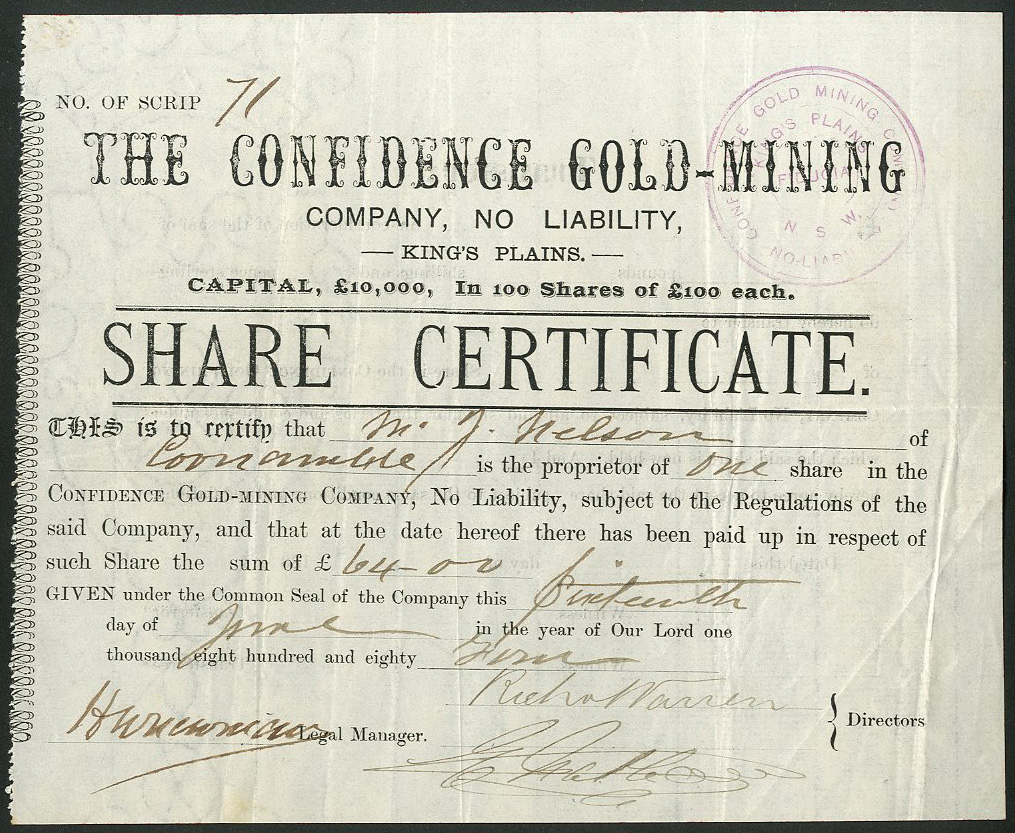 NO. OF SCRIP 71
THE CONFIDENCE GOLD-MINING
COMPANY, NO LIABILITY,
— KING'S PLAINS. —
CAPITAL, £10,000, In 100 Shares of £100 each.
SHARE CERTIFICATE.
THIS is to certify that Mr J. Nelson of
Coonamble is the proprietor of One share in the
CONFIDENCE GOLD-MINING COMPANY, NO LIABILITY, subject to the Regulations of the
said Company, and that at the date hereof there has been paid up in respect of
such Share the sum of £ 64-0-0
GIVEN under the Common Seal of the Company this Sixteenth
day of June in the year of Our Lord one
thousand eight hundred and eighty four
Warren
Legal Manager.
Directors
GOLD MINING
KING'S PLAINS
N S W.
NO-LIABI